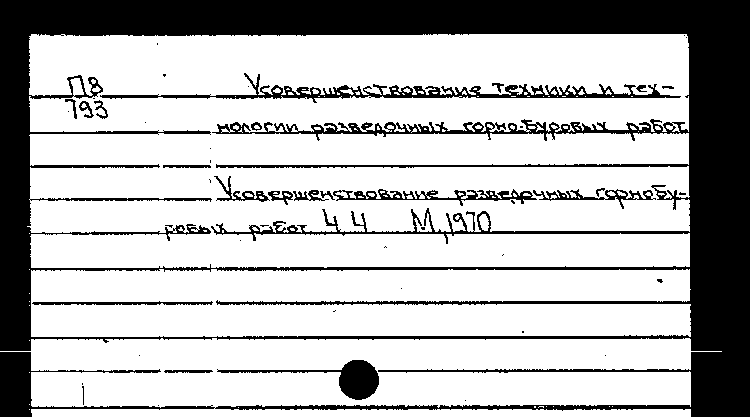 П8 Усовершенствование техники и тех-
793
нологии разведочных горно-буровых работ
Усовершенствование разведочных горнобу-
ровых работ Ч 4 М, 1970